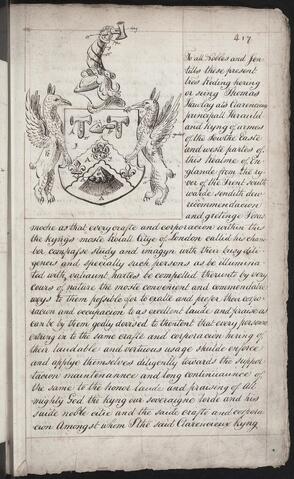 417
To all Nobles and Jen-
tills these present
tres Reding hering
or seing Thomas
Hawlay als Clarencieux
principall Herauld
and Kyng of armes
of the Sowthe easte
and weste parties of
this Realme of En-
glande from the ry-
ver of the Trent south
warde sendith dew
recommendacion
and gretinge Foras
moche as that every crafte and corporacion within this
the kyngs moste Roiall Citye of London called his cham
ber compasse study and imagyn with their busy dili-
gences and specially such persons as be illumina-
ted with valiaunt hartes be compelled therunto by very
cours of nature the moste convenient and commendable
ways to them possible for to exalte and prefer their corpo-
racion and occupacion to as excellent laude and praise as
can be by them godly devised to thentent that every persone
entring in to the same crafte and corporacion hering of
their laudable and vertuous usage shulde enforce
and applye themselves diligently toward the suppor-
tacion maintenance and long continuaunce of
the same to the honor laude and praysing of All
mighty God the kyng our soveraigne lorde and his
saide noble citie and the saide crafte and corpora
cion Amongst whom I the said Clarencieux Kyng